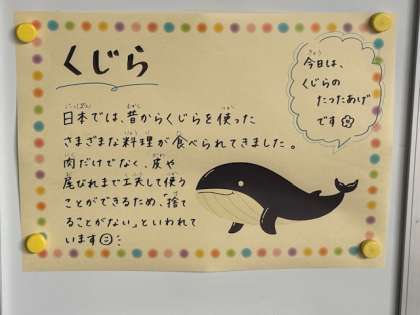 くじら
日本では、昔からくじらを使った
さまざまな料理が食べられてきました。
肉だけでなく、皮や
尾びれまで工夫して使う
ことができるため、"捨て
ることがない"といわれて
います
今日は、
くじらの
たつたあげ
です